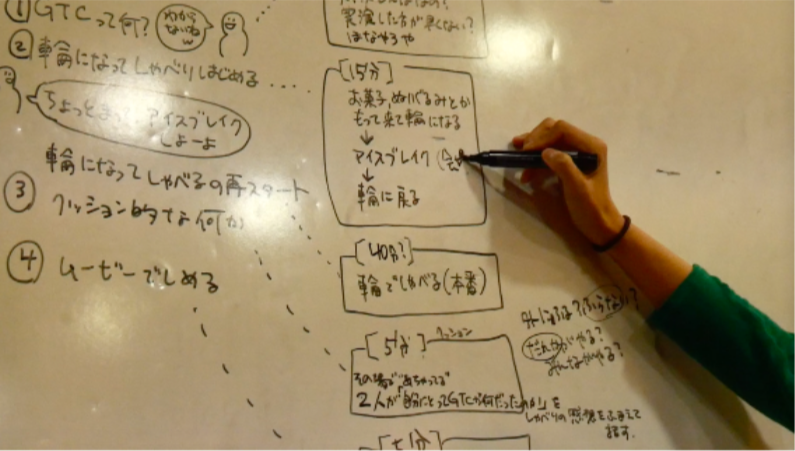 ① GTCって何?
わから
ないねw
② 輪になってしゃべりはじめる
ちょっとまって アイスブレイク
しよーよ
輪になってしゃべるの再スタート
③ クッション的な何か
④ ムービーでしめる
実演した方が早くない?
はなやろや
[15分]
お菓子、ぬいぐるみとか
もって来て輪になる
↓
アイスブレイク(
↓
輪に戻る
[40分?]
輪でしゃべる(本番)
[5分?]
クッション
2人が「自分にとってGTCが何だったのか」を
しゃべりの感想をふまえて
話す.
だれがやる?
みんながやる?